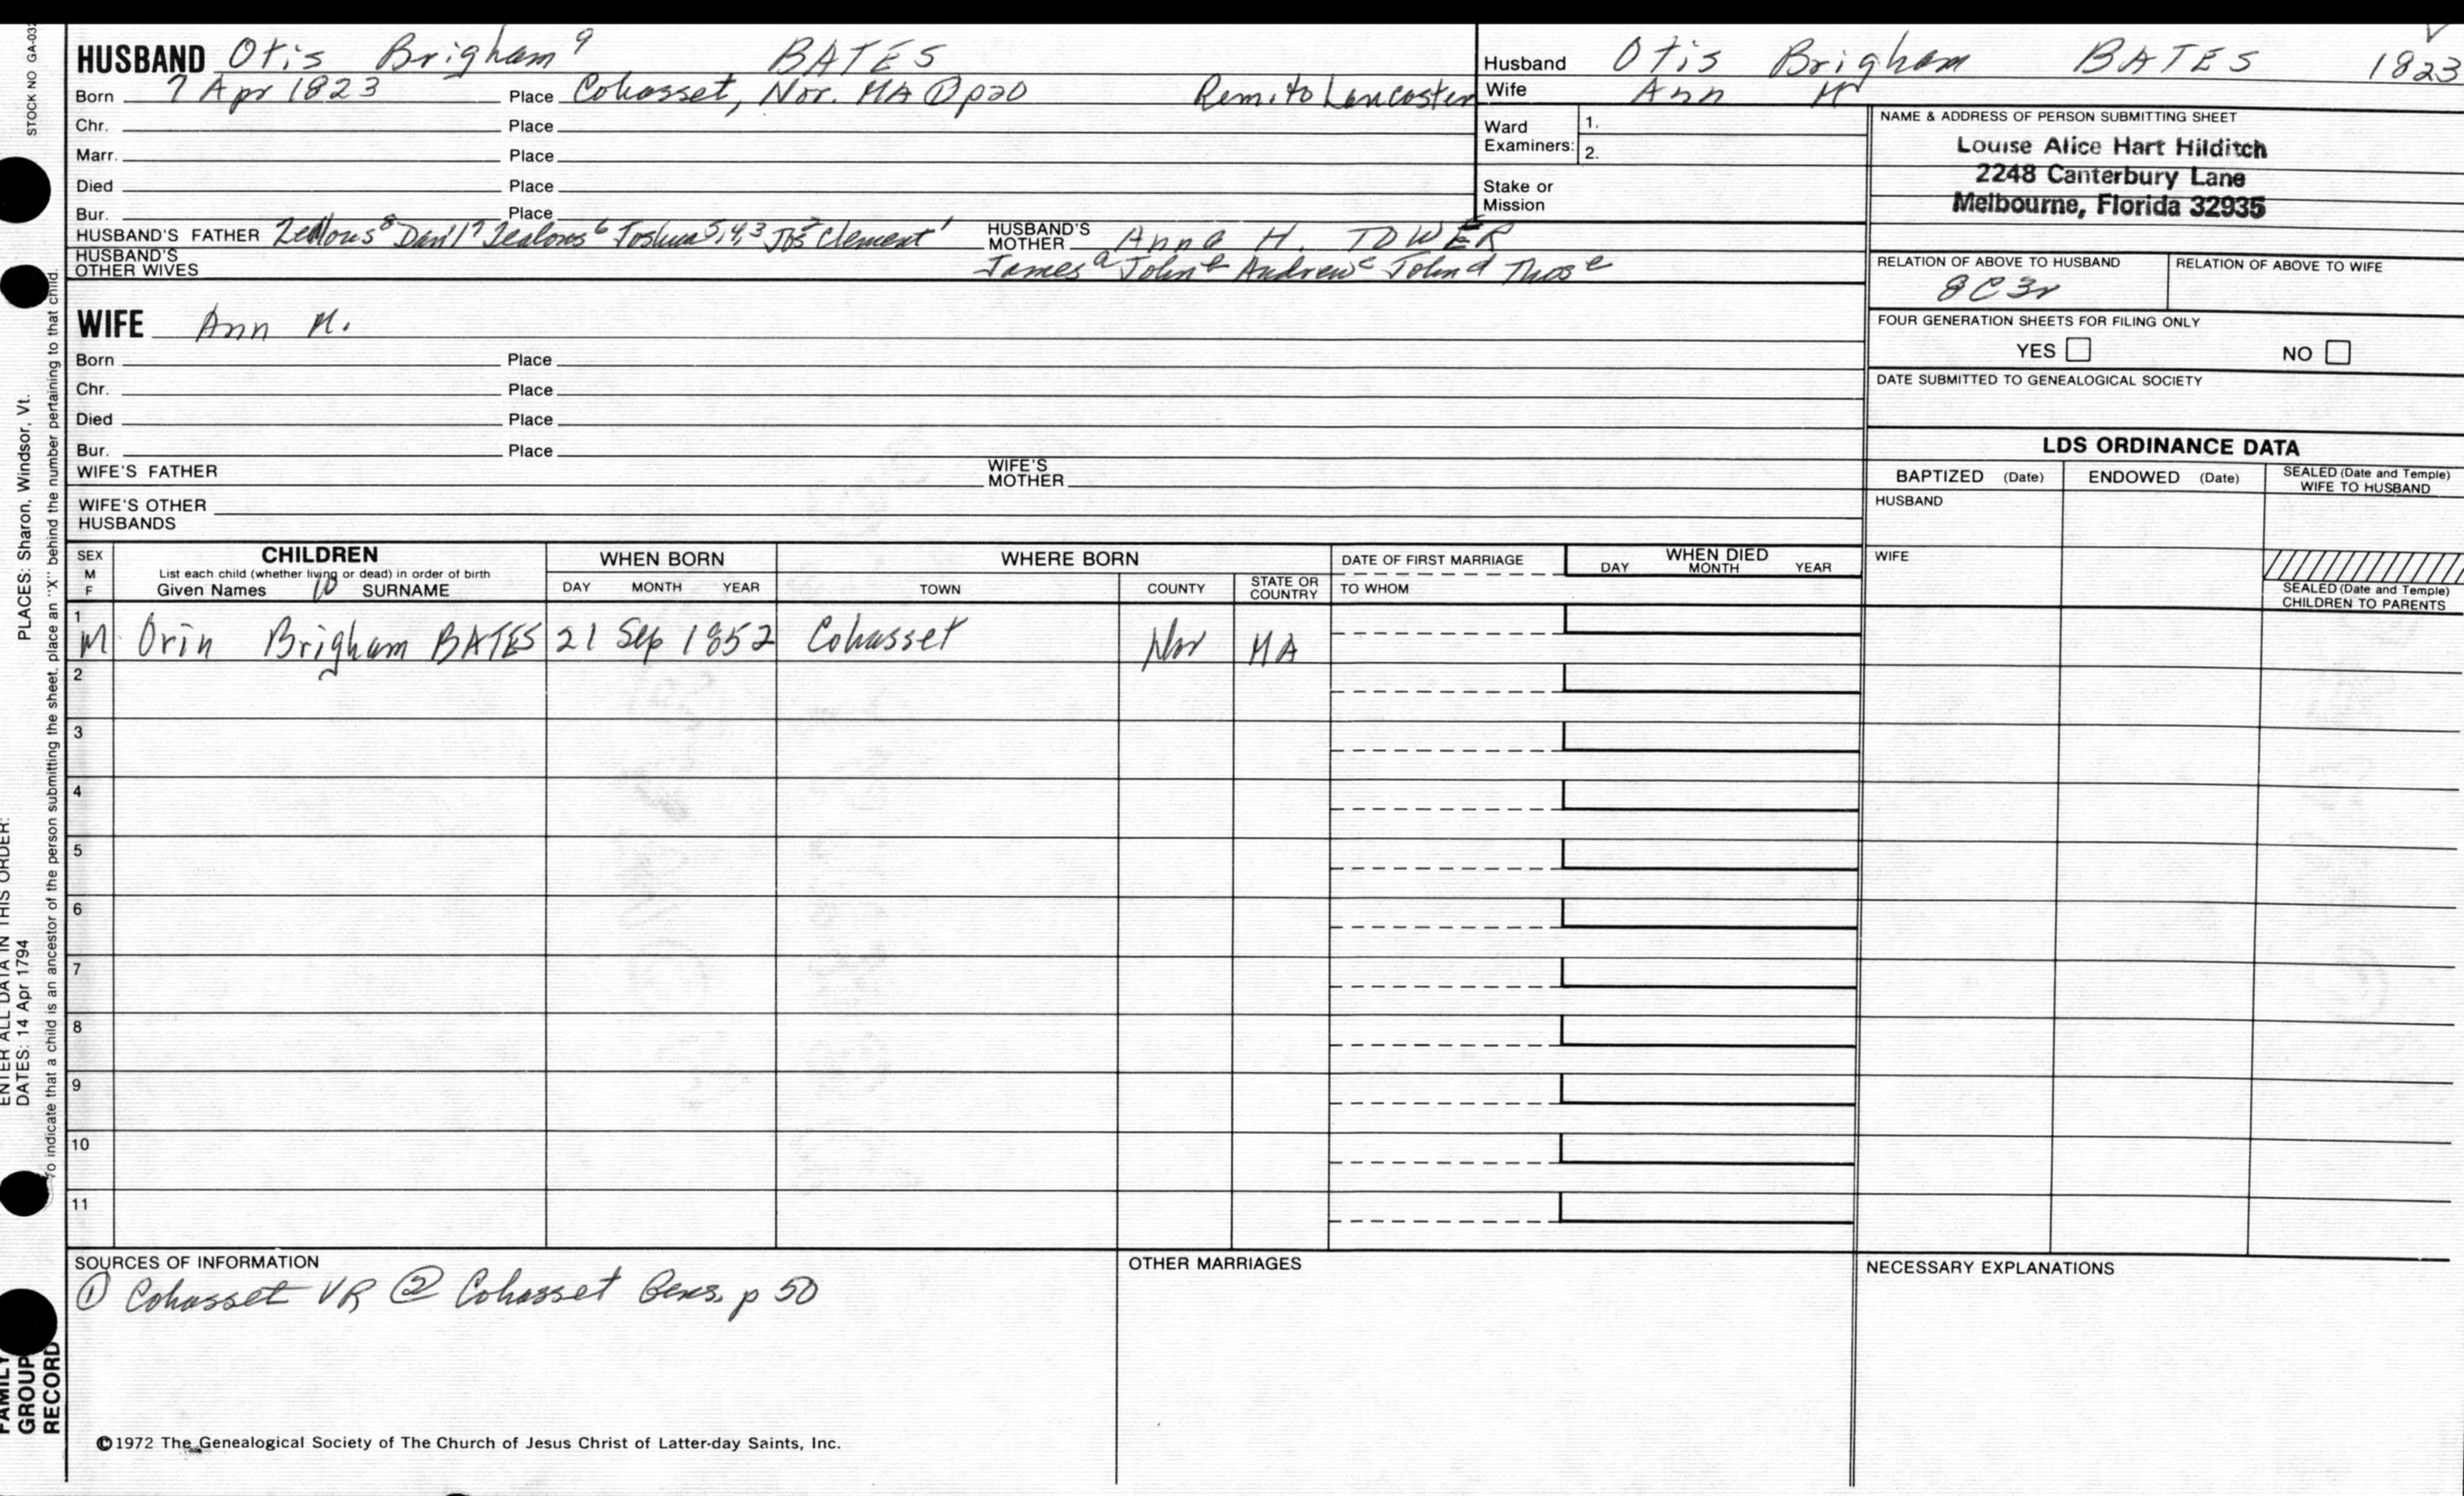 STOCK NO GA-032
HUSBAND Otis Brigham 9 BATES
Born 7 Apr 1823 Place Cohasset, Nor. MA ① p20 Rem. to Lancaster
Chr. Place
Marr. Place
Died Place
Bur. Place
HUSBAND'S FATHER Zealous 8 Dan'l 7 Zealous 6 Joshua 5,4,3 Jos 2 Clement 1 HUSBAND'S MOTHER Anna H. TOWER
HUSBAND'S OTHER WIVES James a John b Andrew c John d Thos e
Husband Otis Brigham BATES 1823
Wife Ann M
Ward Examiners: 1.
2.
Stake or Mission
NAME & ADDRESS OF PERSON SUBMITTING SHEET
Louise Alice Hart Hilditch
2248 Canterbury Lane
Melbourne, Florida 32935
RELATION OF ABOVE TO HUSBAND RELATION OF ABOVE TO WIFE
8C3r
FOUR GENERATION SHEETS FOR FILING ONLY
YES NO
DATE SUBMITTED TO GENEALOGICAL SOCIETY
WIFE Ann M.
Born Place
Chr. Place
Died Place
Bur. Place
WIFE'S FATHER WIFE'S MOTHER
WIFE'S OTHER HUSBANDS
LDS ORDINANCE DATA
BAPTIZED (Date) ENDOWED (Date) SEALED (Date and Temple) WIFE TO HUSBAND
HUSBAND
WIFE
SEALED (Date and Temple) CHILDREN TO PARENTS
SEX M F CHILDREN WHEN BORN WHERE BORN DATE OF FIRST MARRIAGE WHEN DIED
List each child (whether living or dead) in order of birth
Given Names 10 SURNAME DAY MONTH YEAR TOWN COUNTY STATE OR COUNTRY TO WHOM DAY MONTH YEAR
1 M Orin Brigham BATES 21 Sep 1852 Cohasset Nor MA
2
3
4
5
6
7
8
9
10
11
SOURCES OF INFORMATION
① Cohasset VR ② Cohasset Gens. p 50
OTHER MARRIAGES
NECESSARY EXPLANATIONS
©1972 The Genealogical Society of The Church of Jesus Christ of Latter-day Saints, Inc.
FAMILY GROUP RECORD
ENTER ALL DATA IN THIS ORDER:
DATES: 14 Apr 1794 PLACES: Sharon, Windsor, Vt.
To indicate that a child is an ancestor of the person submitting the sheet, place an "X" behind the number pertaining to that child.